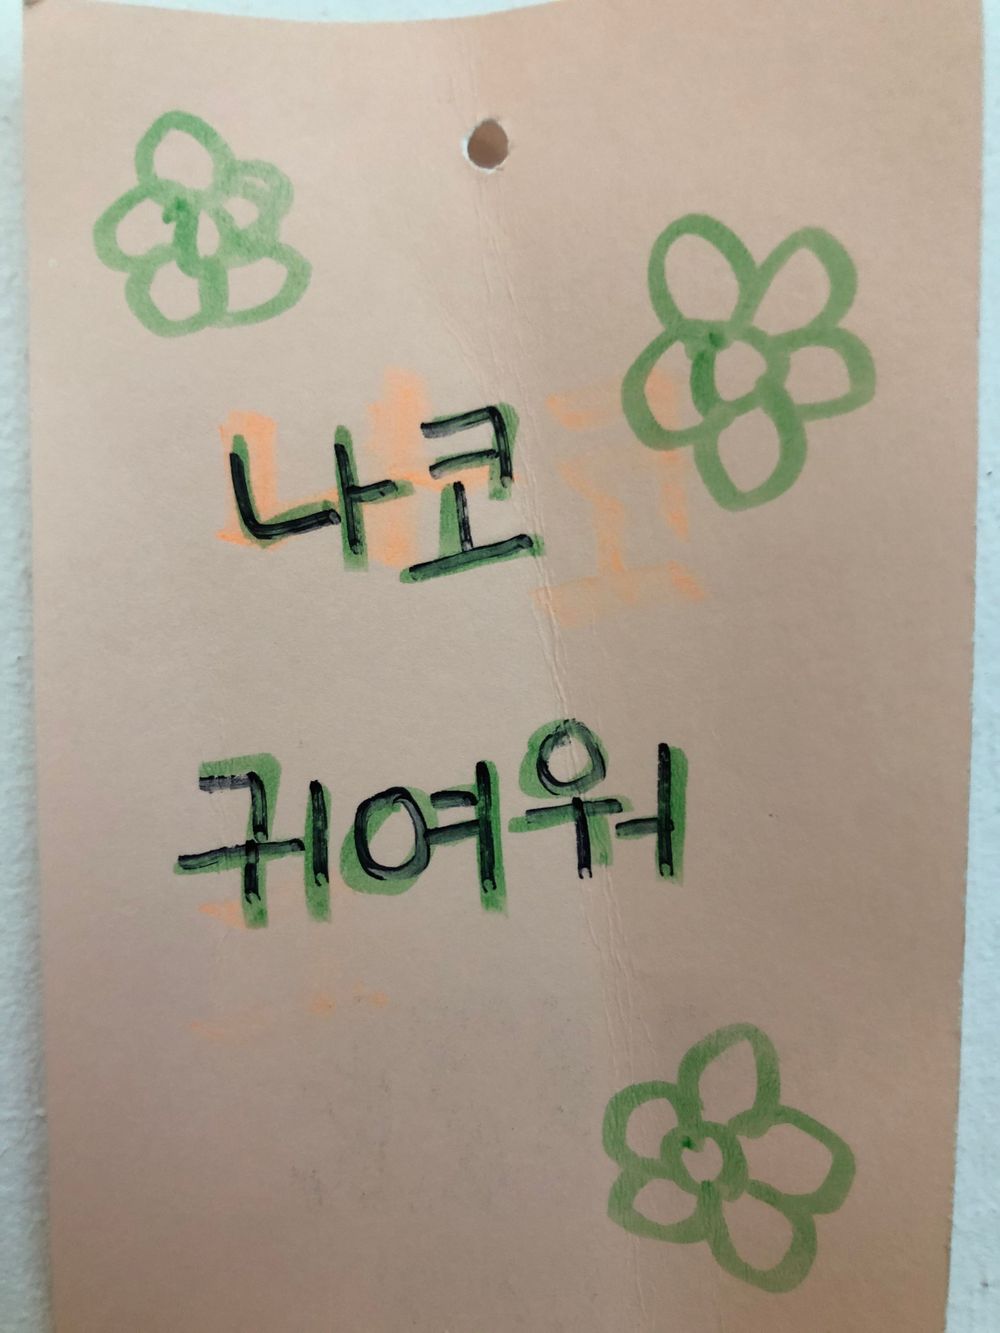 나코
귀여워